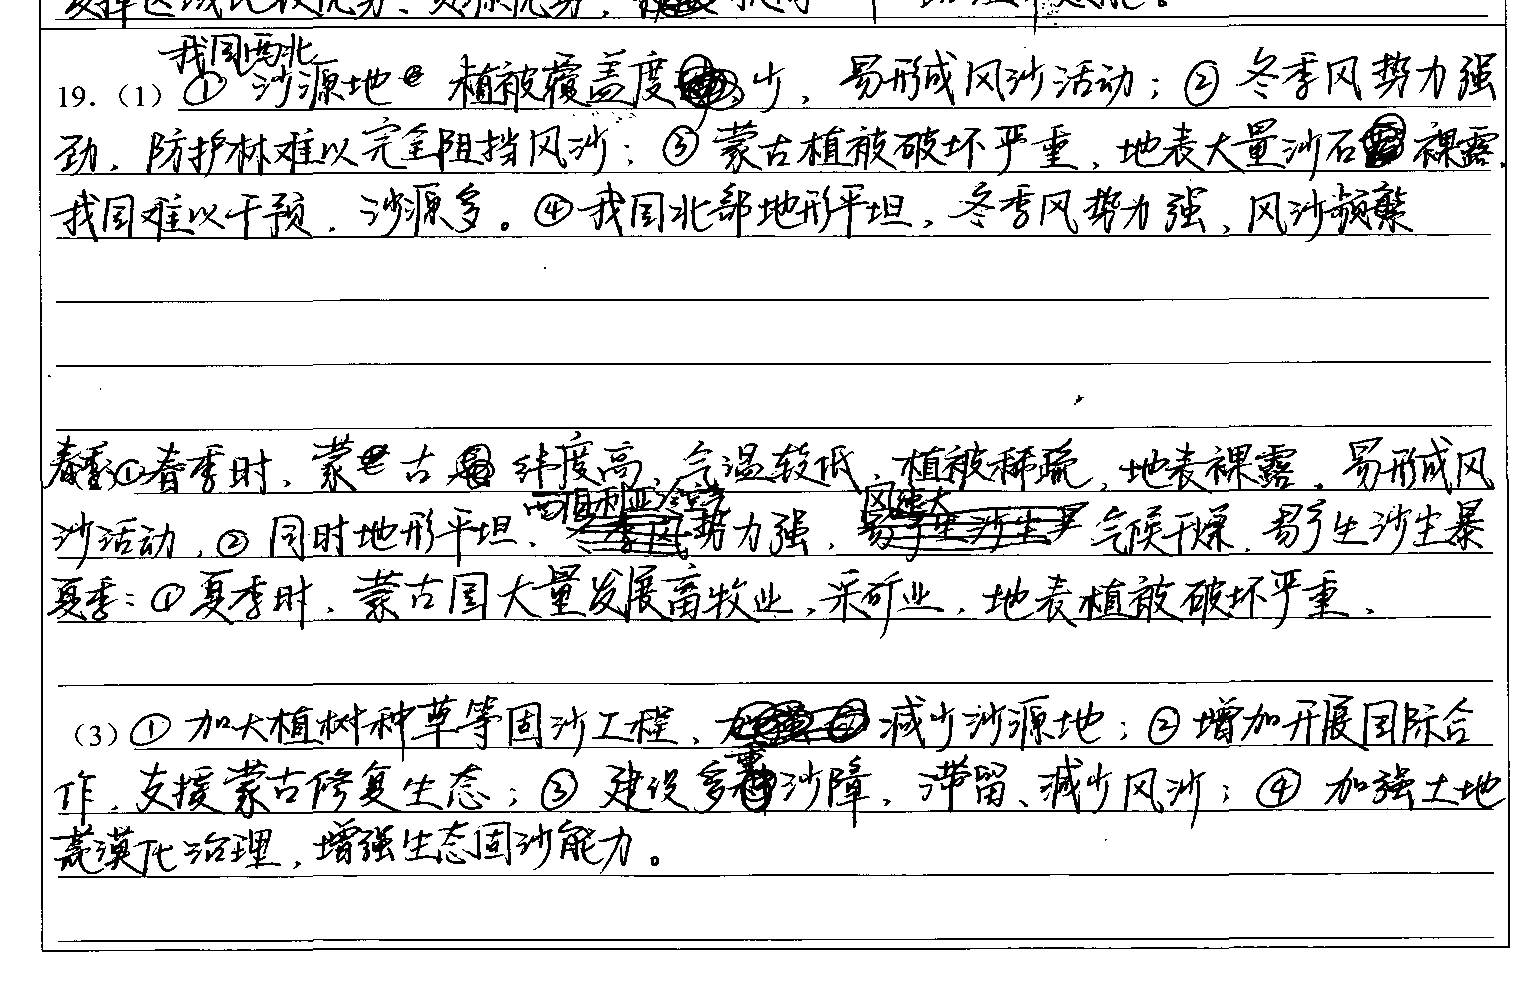 发挥区域比较优势、资源优势，
我国西北
19.（1）① 沙源地 植被覆盖度少，易形成风沙活动；② 冬季风势力强
劲，防护林难以完全阻挡风沙；③ 蒙古植被破坏严重，地表大量沙石裸露，
我国难以干预，沙源多。④ 我国北部地形平坦，冬季风势力强，风沙频繁
春季：①春季时，蒙古 纬度高，气温较低，植被稀疏，地表裸露，易形成风
西伯利亚冷空气 风速大
沙活动，② 同时地形平坦、势力强，气候干燥，易产生沙尘暴
夏季：① 夏季时，蒙古国大量发展畜牧业，采矿业，地表植被破坏严重，
（3）① 加大植树种草等固沙工程，减少沙源地；② 增加开展国际合
作，支援蒙古修复生态；③ 建设多重沙障，滞留、减少风沙；④ 加强土地
荒漠化治理，增强生态固沙能力。